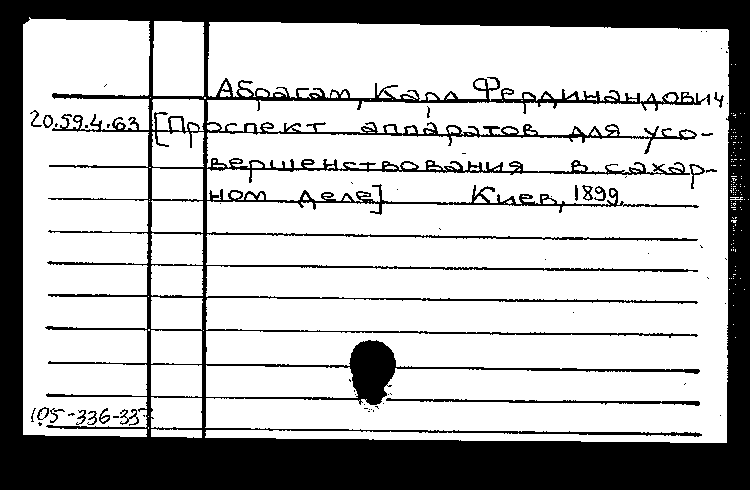 Абрагам, Карл Фердинандович
20.59.4.63 [Проспект аппаратов для усо-
вершенствования в сахар-
ном деле] Киев, 1899.
105-336-33